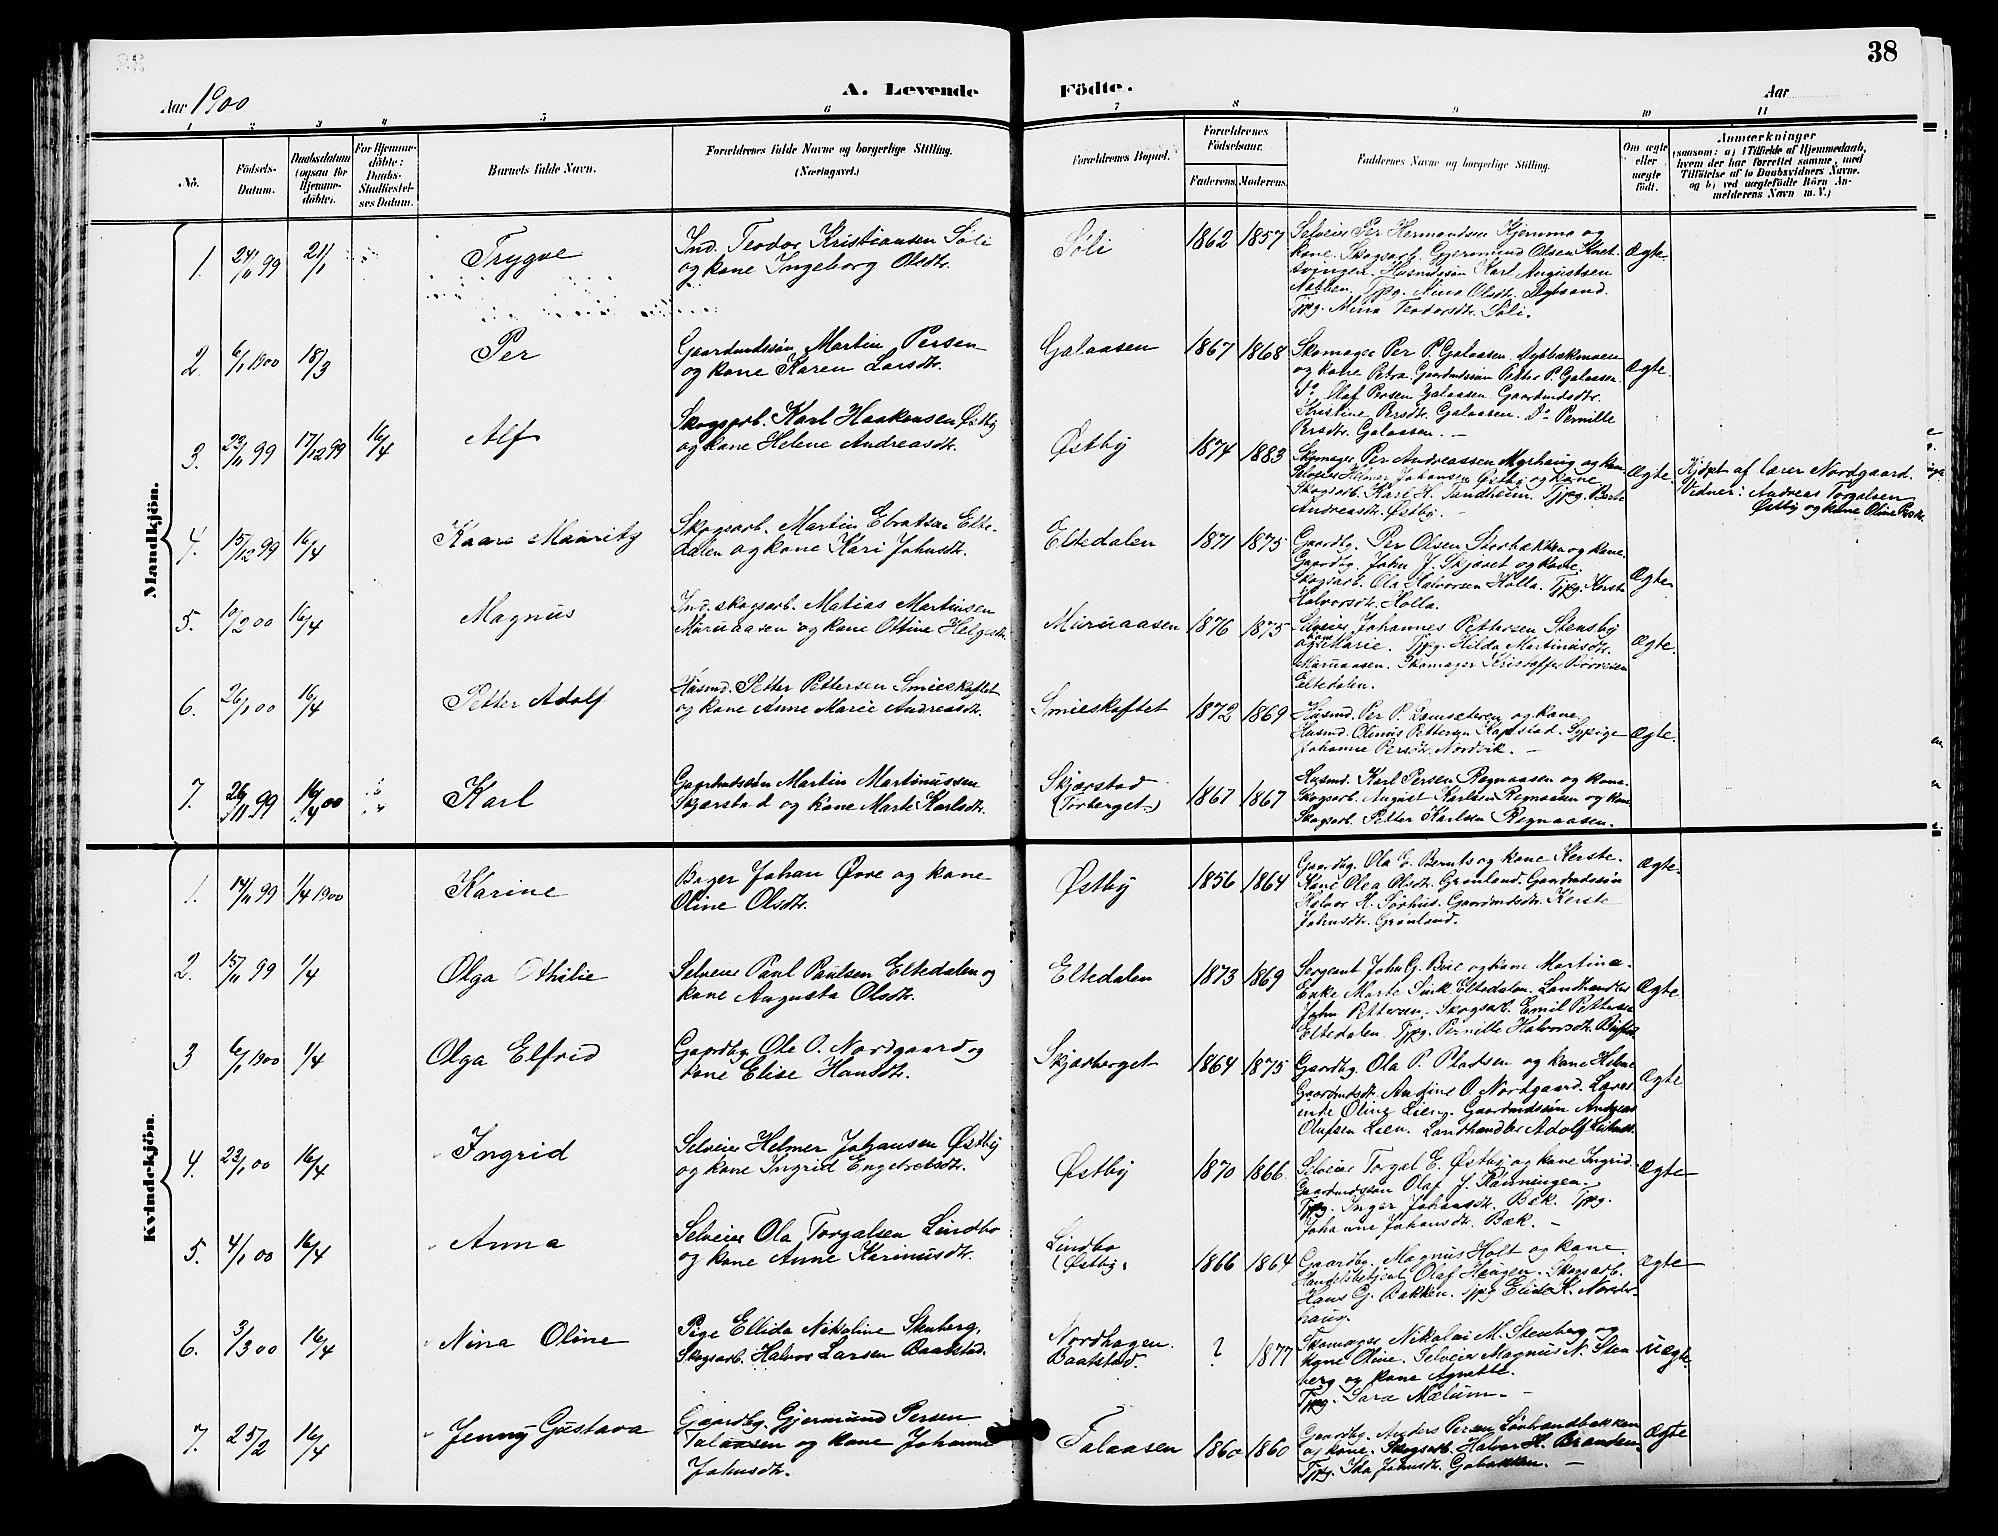 38
Aar 1900
A. Levende
Födte.
Aar
1 2 3 4 5 6 7 8 9 10 11
No.
Födsels-
Datum.
Daabsdatum
(ogsaa for
Hjemme-
döbte).
For Hjemme-
döbte:
Daabs-
Stadfæstel-
ses Datum.
Barnets fulde Navn.
Forældrenes fulde Navne og borgerlige Stilling.
(Næringsvei.)
Forældrenes Bopæl.
Forældrenes
Födselsaar.
Faderens. Moderens.
Faddernes Navne og borgerlige Stilling.
Om ægte
eller
uægte
födt.
Anmærkninger
(saasom: a) i Tilfælde af Hjemmedaab,
hvem der har forrettet samme, med
Tilföielse af to Daabsvidners Navne.
og b) ved uægtefödte Börn An-
melderens Navn m. V.)
Mandkjön.
1. 24/11 99 21/1 Trygve
Ind. Teodor Kristiansen Söli
og kone Ingeborg Olsdtr.
Söli 1862 1857
Selveier Per Hermandsen Kjemmo og
kone. Skogsarb. Gjermund Olsen Knet-
svingen. Husmdssön Karl Augustsen
Nabben. Tjpg. Nina Olsdtr. Dybsand.
Tjpg. Mina Teodorsdtr. Söli.
Ægte.
2. 6/1 1900 18/3 Per
Gaardmdssön Martin Persen
og kone Karen Larsdtr.
Galaasen 1867 1868
Skomager Per P. Galaasen. Dybbækmoen
og kone Petra. Gaardmdssön Petter P. Galaasen.
do Olaf Persen Galaasen. Gaardmdsdtr.
Kristine Persdtr. Galaasen. Do Pernille
Persdtr. Galaasen. -
Ægte.
3. 23/11 99 17/12 99 16/4 Alf
Skogsarb. Karl Haakensen Østby
og kone Helene Andreasdtr.
Østby 1874 1883
Skomager Per Andreassen Myrhaug og kone
Selveier Helmer Johansen Østby og kone
Skogsarb. Karl H. Tandheim. Tjpg. Berte
Andreasdtr. Østby. -
Ægte.
Hjdpt af lærer Nordgaard.
Vidner: Andreas Torgalsen
Østby og kone Oline Persdtr.
4. 15/12 99 16/4 Kaare Mauritz
Skogsarb. Martin Ebratsen Elte-
dalen og kone Kari Johnsdtr.
Eltedalen 1871 1875
Gaardbg. Per Olsen Storbækken og kone.
Gaardbg. John J. Skjæret og kone.
Skogsarb. Ola Halvorsen Holla. Tjpg. Kerste
Halvorsdtr. Holla.
Ægte.
5. 10/2 00 16/4 Magnus
Ind. skogsarb. Matias Martinsen
Muruaasen og kone Ottine Helgesdtr.
Muruaasen 1876 1875
Selveier Johannes Pettersen Stensby
og kone Marie. Tjpg. Hilda Martinusdtr.
Muruaasen. Skomager Kristoffer
Eltedalen.
Ægte.
6. 26/1 00 16/4 Petter Adolf
Husmd. Petter Pettersen Smieskaftet
og kone Anne Marie Andreasdtr.
Smieskaftet 1872 1869
Husmd. Per P. Lamseteren og kone
Husmd. Olinius Pettersen Kapstad. Tjpige
Johanne Persdtr. Nordvik. -
Ægte.
7. 26/11 99 16/4 00 Karl
Gaardmdssön Martin Martinussen
Skjærstad og kone Marte Karlsdtr.
Skjærstad
(Torberget.)
1867 1867
Husmd. Karl Persen Regnaasen og kone.
Skogsarb. August Karlsen Regnaasen og kone
Skogsarb. Petter Karlsen Regnaasen.
Kvindekjön.
1. 14/11 99 1/4 1900 Karine
Bager Johan Øvre og kone
Oline Olsdtr.
Østby 1856 1864
Gaardbg. Ola E. Bernts og kone Kerste.
Kone Olea Olsdtr. Grønland. Gaardmdssön
Halvor H. Sørhus. Gaardmdsdtr. Kerste
Johnsdtr. Grønland.
Ægte.
2. 15/11 99 1/4 Olga Othilie
Selveier Paul Paulsen Eltedalen og
kone Augusta Olsdtr.
Eltedalen 1873 1869
Sergeant John G. Bue og kone Martina.
Enke Marte Sink Eltedalen. Landhandler
John Pettersen. Skogsarb. Emil Pettersen
Eltedalen. Tjpg. Pernille Halvorsdtr.
Ægte.
3 6/1 1900 1/4 Olga Elfrid
Gaardbg. Ole O. Nordgaard og
kone Elise Hansdtr.
Skjærberget 1864 1875
Gaardbg. Ola P. Pladsen og kone Helene
Gaardmdsdtr. Andine O. Nordgaard. Lærer-
inde Oline Lien. Gaardmdssön Andreas
Olufsen Lien. Landhandler Adolf
Ægte.
4. 22/1 00 16/4 Ingrid
Selveier Helmer Johansen Østby
og kone Ingrid Engebretsdtr.
Østby 1870 1866
Selveier Torgal E. Østby og kone Ingrid.
Gaardmdssön Olaf J. Rønningen.
Tjpg. Inger Johansdtr. Bæk. Tjpg.
Johanne Johansdtr. Bæk. -
Ægte
5. 4/1 00 16/4 Anna
Selveier Ola Torgalsen Lindbo
og kone Anne Karinusdtr.
Lindbo
(Østby)
1866 1864
Gaardbg. Magnus Holt og kone.
Handelsbetjent Olaf Haugen. Skogsarb.
Hans G. Bakken. Tjpg Elida K. Norder-
haug.
Ægte
6. 3/3 00 16/4 Nina Oline
Pige Ellida Nikoline Stenberg.
Skogsarb. Halvor Larsen Baatstad.
Nordhagen.
Baatstad.
? 1877
Skomager Nikolai M. Stenberg og
kone Oline. Selveier Magnus N. Sten-
berg og kone Agnette.
Tjpg. Sara Mælum. -
Uægte
7. 25/2 16/4 Jenny Gustava
Gaardbg. Gjermund Persen
Falaasen og kone Johanne
Johnsdtr.
Falaasen 1860 1860
Gaardbg. Anders Persen Lövhaugbakken
og kone. Skogsarb. Halvor H. Branden.
Tjpg. Ida Johnsdtr. Gobakken. -
Ægte